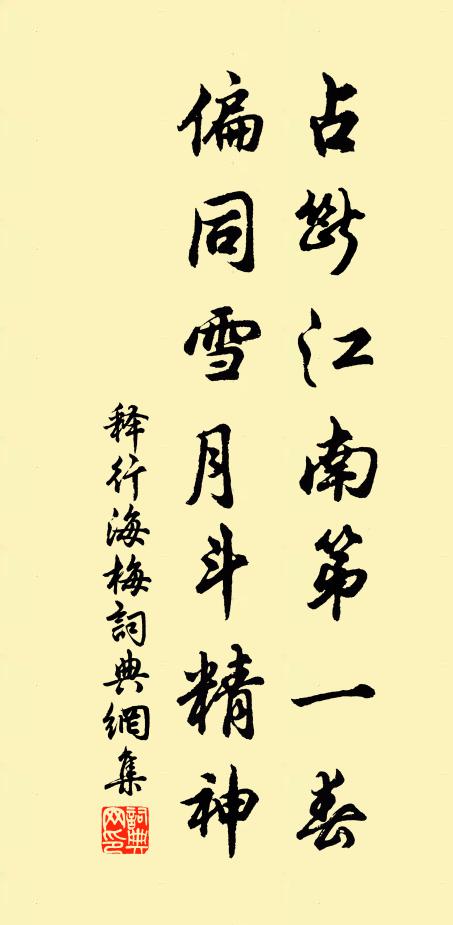 占断江南第一春
偏同雪月斗精神
释行海梅詞典網集
詞典网印